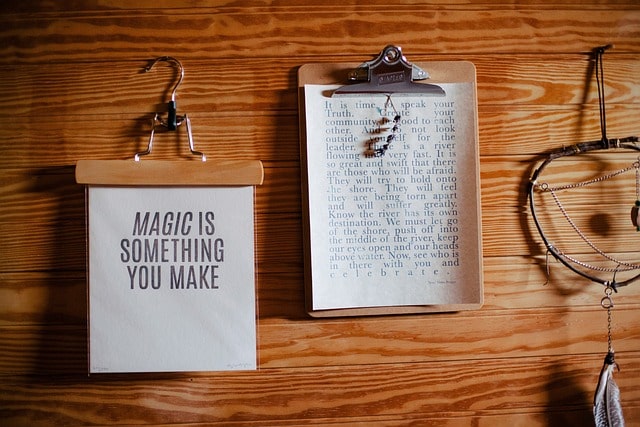 MAGIC IS
SOMETHING
YOU MAKE
It is time to speak your
Truth. Create your
community. good to each
other. And not look
outside yourself for the
leader. is a river
flowing very fast. It is
so great and swift that there
are those who will be afraid.
They will try to hold onto
the shore. They will feel
they are being torn apart
and will suffer greatly.
Know the river has its own
destination. We must let go
of the shore, push off into
the middle of the river, keep
our eyes open and our heads
above water. Now, see who is
in there with you and
celebrate.